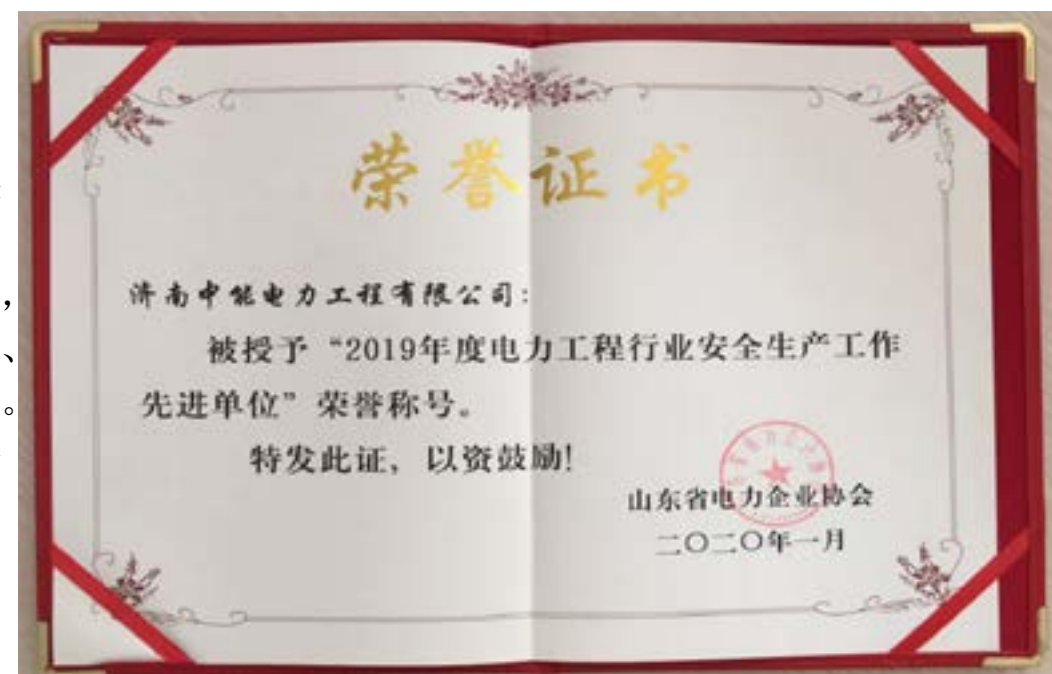 荣誉证书
济南中能电力工程有限公司：
被授予“2019年度电力工程行业安全生产工作
先进单位”荣誉称号。
特发此证，以资鼓励！
山东省电力企业协会
二〇二〇年一月